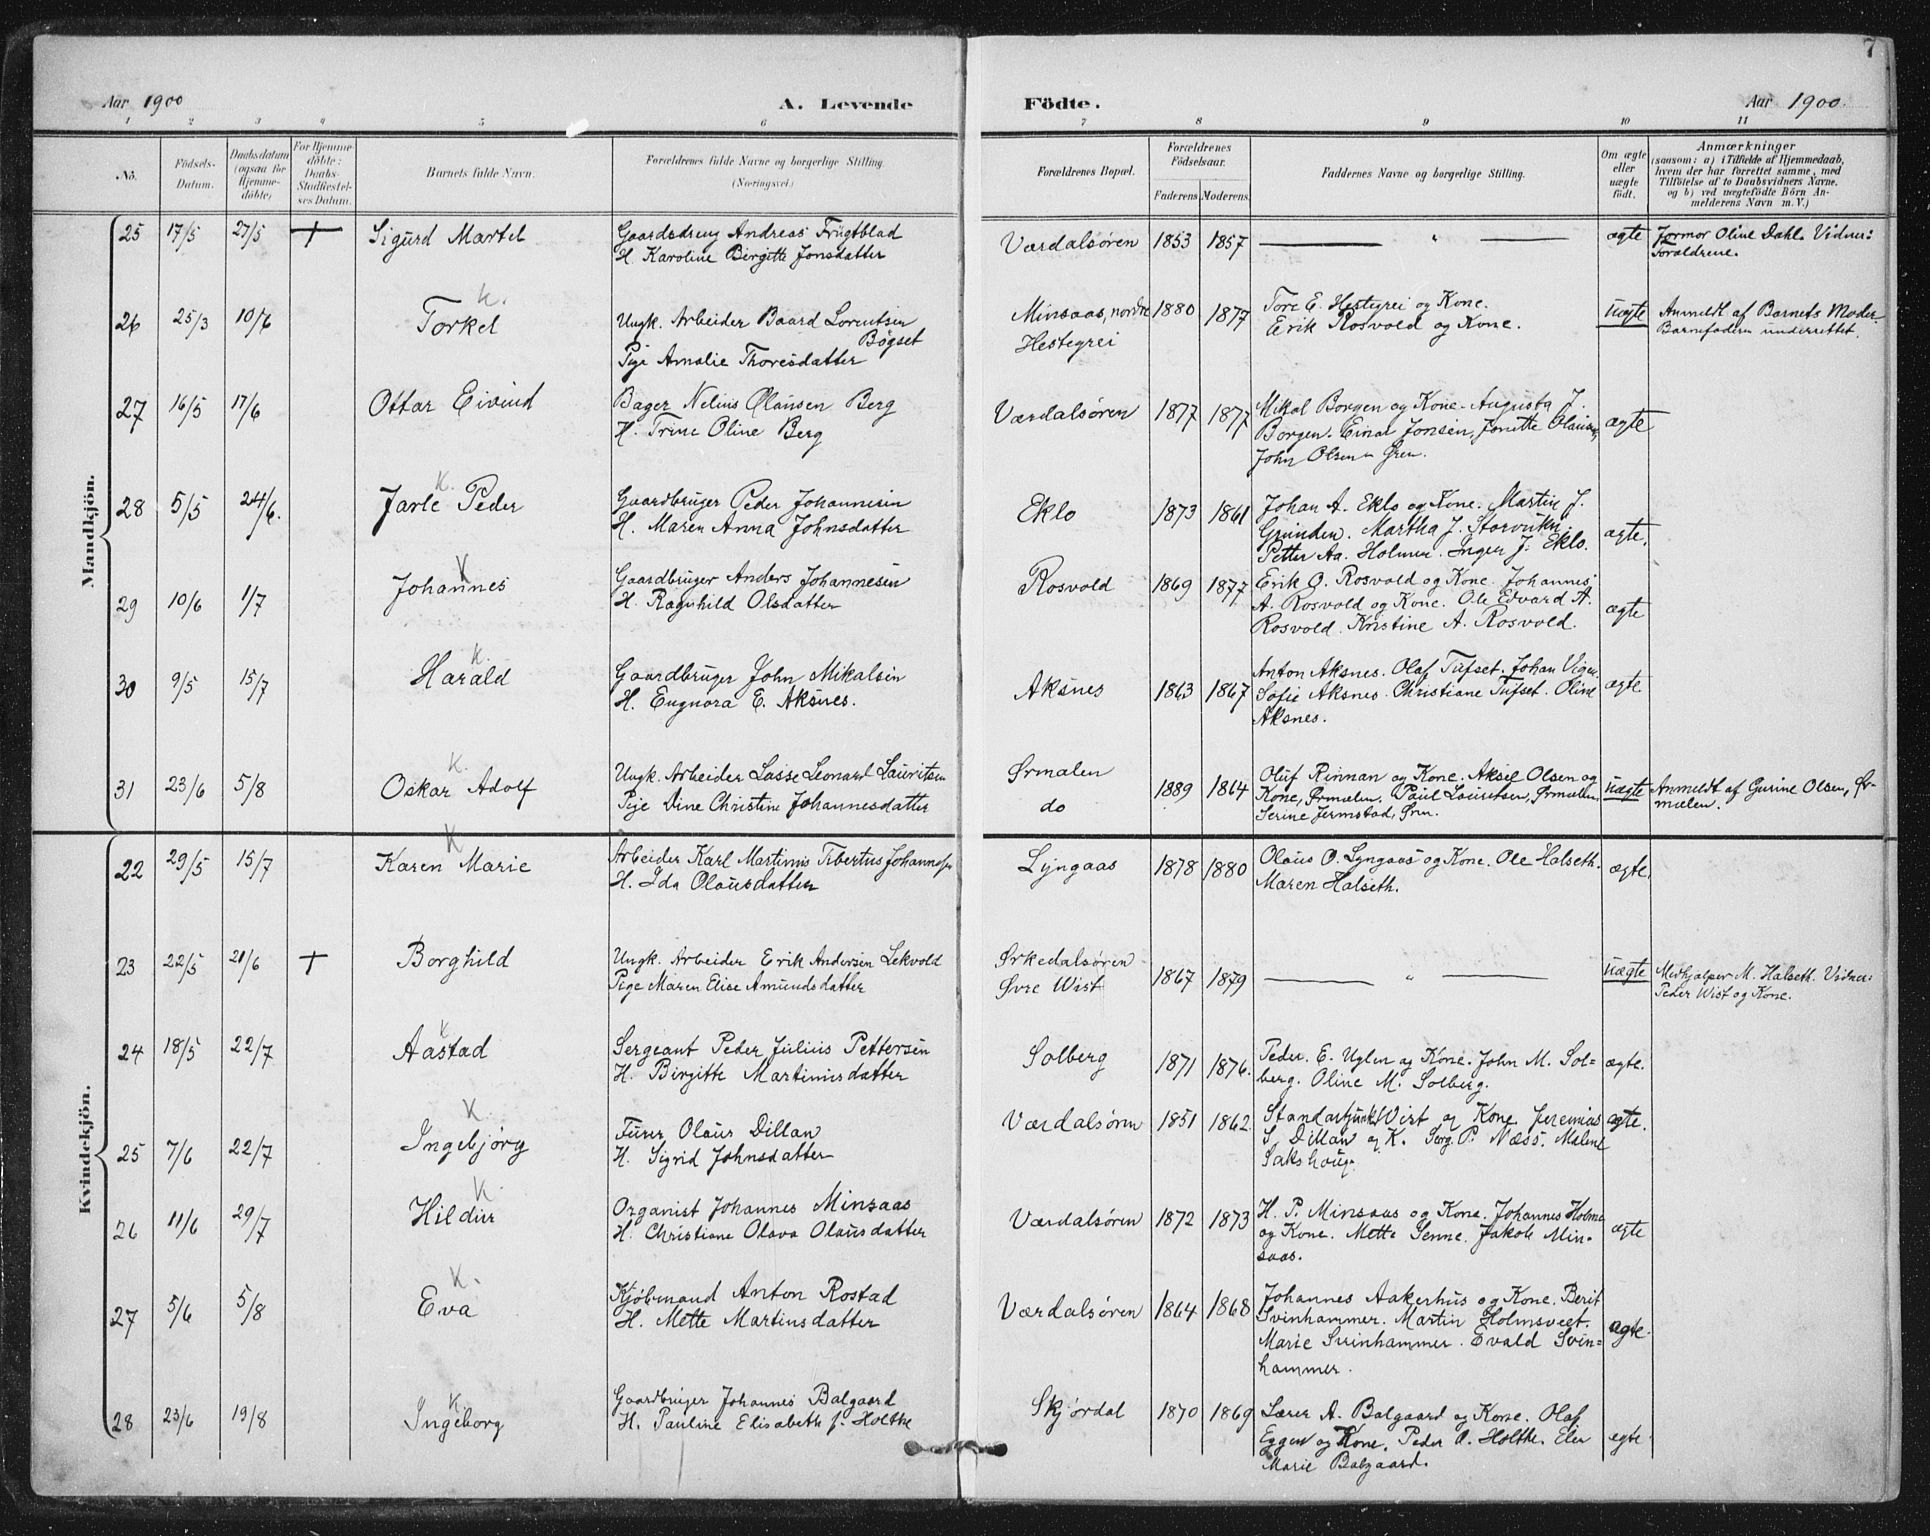 7
Aar 1900
A. Levende
Födte.
Aar 1900.
1 2 3 4 5 6 7 8 9 10 11
No.
Födsels-
Datum.
Daabsdatum
(ogsaa for
Hjemme-
döbte)
For Hjemme-
döbte:
Daabs-
Stadfæstel-
ses Datum.
Barnets fulde Navn.
Forældrenes fulde Navne og borgerlige Stilling.
(Næringsvei.)
Forældrenes Bopæl.
Forældrenes
Födselsaar.
Faderens Moderens
Faddernes Navne og borgerlige Stilling.
Om ægte
eller
uægte
födt.
Anmærkninger
(saasom: a) i Tilfælde af Hjemmedaab,
hvem der har forrettet samme, med
Tilföielse af to Daabsvidners Navne,
og b) ved uægtefödte Börn An-
melderens Navn m. V.)
Mandkjön.
25 17/5 27/5 + Sigurd Martel Gaardsdreng Andreas Frügtblad Værdalsören 1853 1857 — „ — ægte Jormor Oline Dahl. Vidner:
H. Karoline Birgitte Jonsdatter Forældrene.
26 25/3 10/6 K. Torkel Ungk. Arbeider Baard Lorntsen Minsaas, nordre 1880 1877 Tore E. Hestegrei og Kone. uægte Anmeldt af Barnets Moder.
Bøgset Hestegrei Erik Rosvold og Kone. Barnefaderen underrettet.
Pige Amalie Thoresdatter
27 16/5 17/6 Ottar Eivind Bager Nelius Olausen Berg Værdalsøren 1877 1877 Mikal Borgen og Kone. Augusta J. ægte
H. Trine Oline Berg Borgen. Einar Jonsen, Jonette Olausen,
John Olsen Ören.
28 5/5 24/6. K. Jarle Peder Gaardbruger Peder Johannesen Eklo 1873 1861 Johan A. Eklo og Kone. Martin J. ægte.
H. Maren Anna Johnsdatter Grunden. Martha J. Storvukn.
Petter Aa. Holmen. Inger J. Eklo.
29 10/6 1/7 K Johannes Gaardbruger Anders Johannesen Rosvold 1869 1877 Erik O. Rosvold og Kone. Johannes ægte
H. Ragnhild Olsdatter A. Rosvold og Kone. Ole Edvard A.
Rosvold. Kristine A. Rosvold.
30 9/5 15/7 K. Harald Gaardbruger John Mikalsen Aksnes 1863 1867 Anton Aksnes. Olaf Tufset. Johan Vigen. ægte
H. Eugnora E. Aksnes. Sofie Aksnes. Christiane Tufset. Oline
Aksnes.
31 23/6 5/8 K. Oskar Adolf Ungk. Arbeider Lasse Leonard Lauritsen Ørmalen 1889 1864 Oluf Rinnan og Kone. Aksel Olsen og uægte Anmeldt af Gurine Olsen, Ør-
Pige Dine Christine Johannesdatter do Kone, Ørmælen. Paul Lauritsen, Ørmælen mælen.
Serine Jermstad, Øren.
Kvindekjön.
22 29/5 15/7 K Karen Marie Arbeider Karl Martinus Tibertus Johannesen Lyngaas 1878 1880 Olaus O. Lyngaas og Kone. Ole Halseth. ægte.
H. Ida Olausdatter Maren Halseth.
23 22/5 21/6 + Borghild Ungk. Arbeider Erik Andersen Lekvold Ørkedalsøren 1867 1879 — „ — uægte Medhjælper M. Halseth. Vidner:
Pige Maren Elise Amundsdatter Øvre Wist Peder Wist og Kone.
24 18/5 22/7 K Aastad Sergeant Peder Julius Pettersen Solberg 1871 1876. Peder. E. Uglen og Kone. John M. Sol= ægte.
H. Birgitte Martinusdatter berg. Oline M. Solberg.
25 7/6 22/7 K. Ingebjørg Furer Olaus Dillan Værdalsøren 1851 1862. Standartjunker Wist og Kone Jeremias ægte.
H. Sigrid Johnsdatter S. Dillan og K. Serg. P. Næss. Malene
Sakshaug.
26 11/6 29/7 K. Hildur Organist Johannes Minsaas Værdalsøren 1872 1873 H. P. Minsaas og Kone. Johannes Holme ægte
H. Christiane Olava Olausdatter og Kone. Mette Senne. Jakob Min-
saas.
27 5/6 5/8 K. Eva Kjøbmand Anton Rostad Værdalsøren 1864 1868 Johannes Aakerhus og Kone. Berit ægte.
H. Mette Martinsdatter Svinhammer. Martin Holmsveet.
Marie Svinhammer. Evald Svin=
hammer.
28 23/6 19/8 K. Ingeborg Gaardbruger Johannes Balgaard Skjørdal 1870 1869 Lærer A. Balgaard og Kone. Olaf ægte
H. Pauline Elisabeth f. Holthe Eggen og Kone. Peder O. Holthe. Elen
Marie Balgaard.